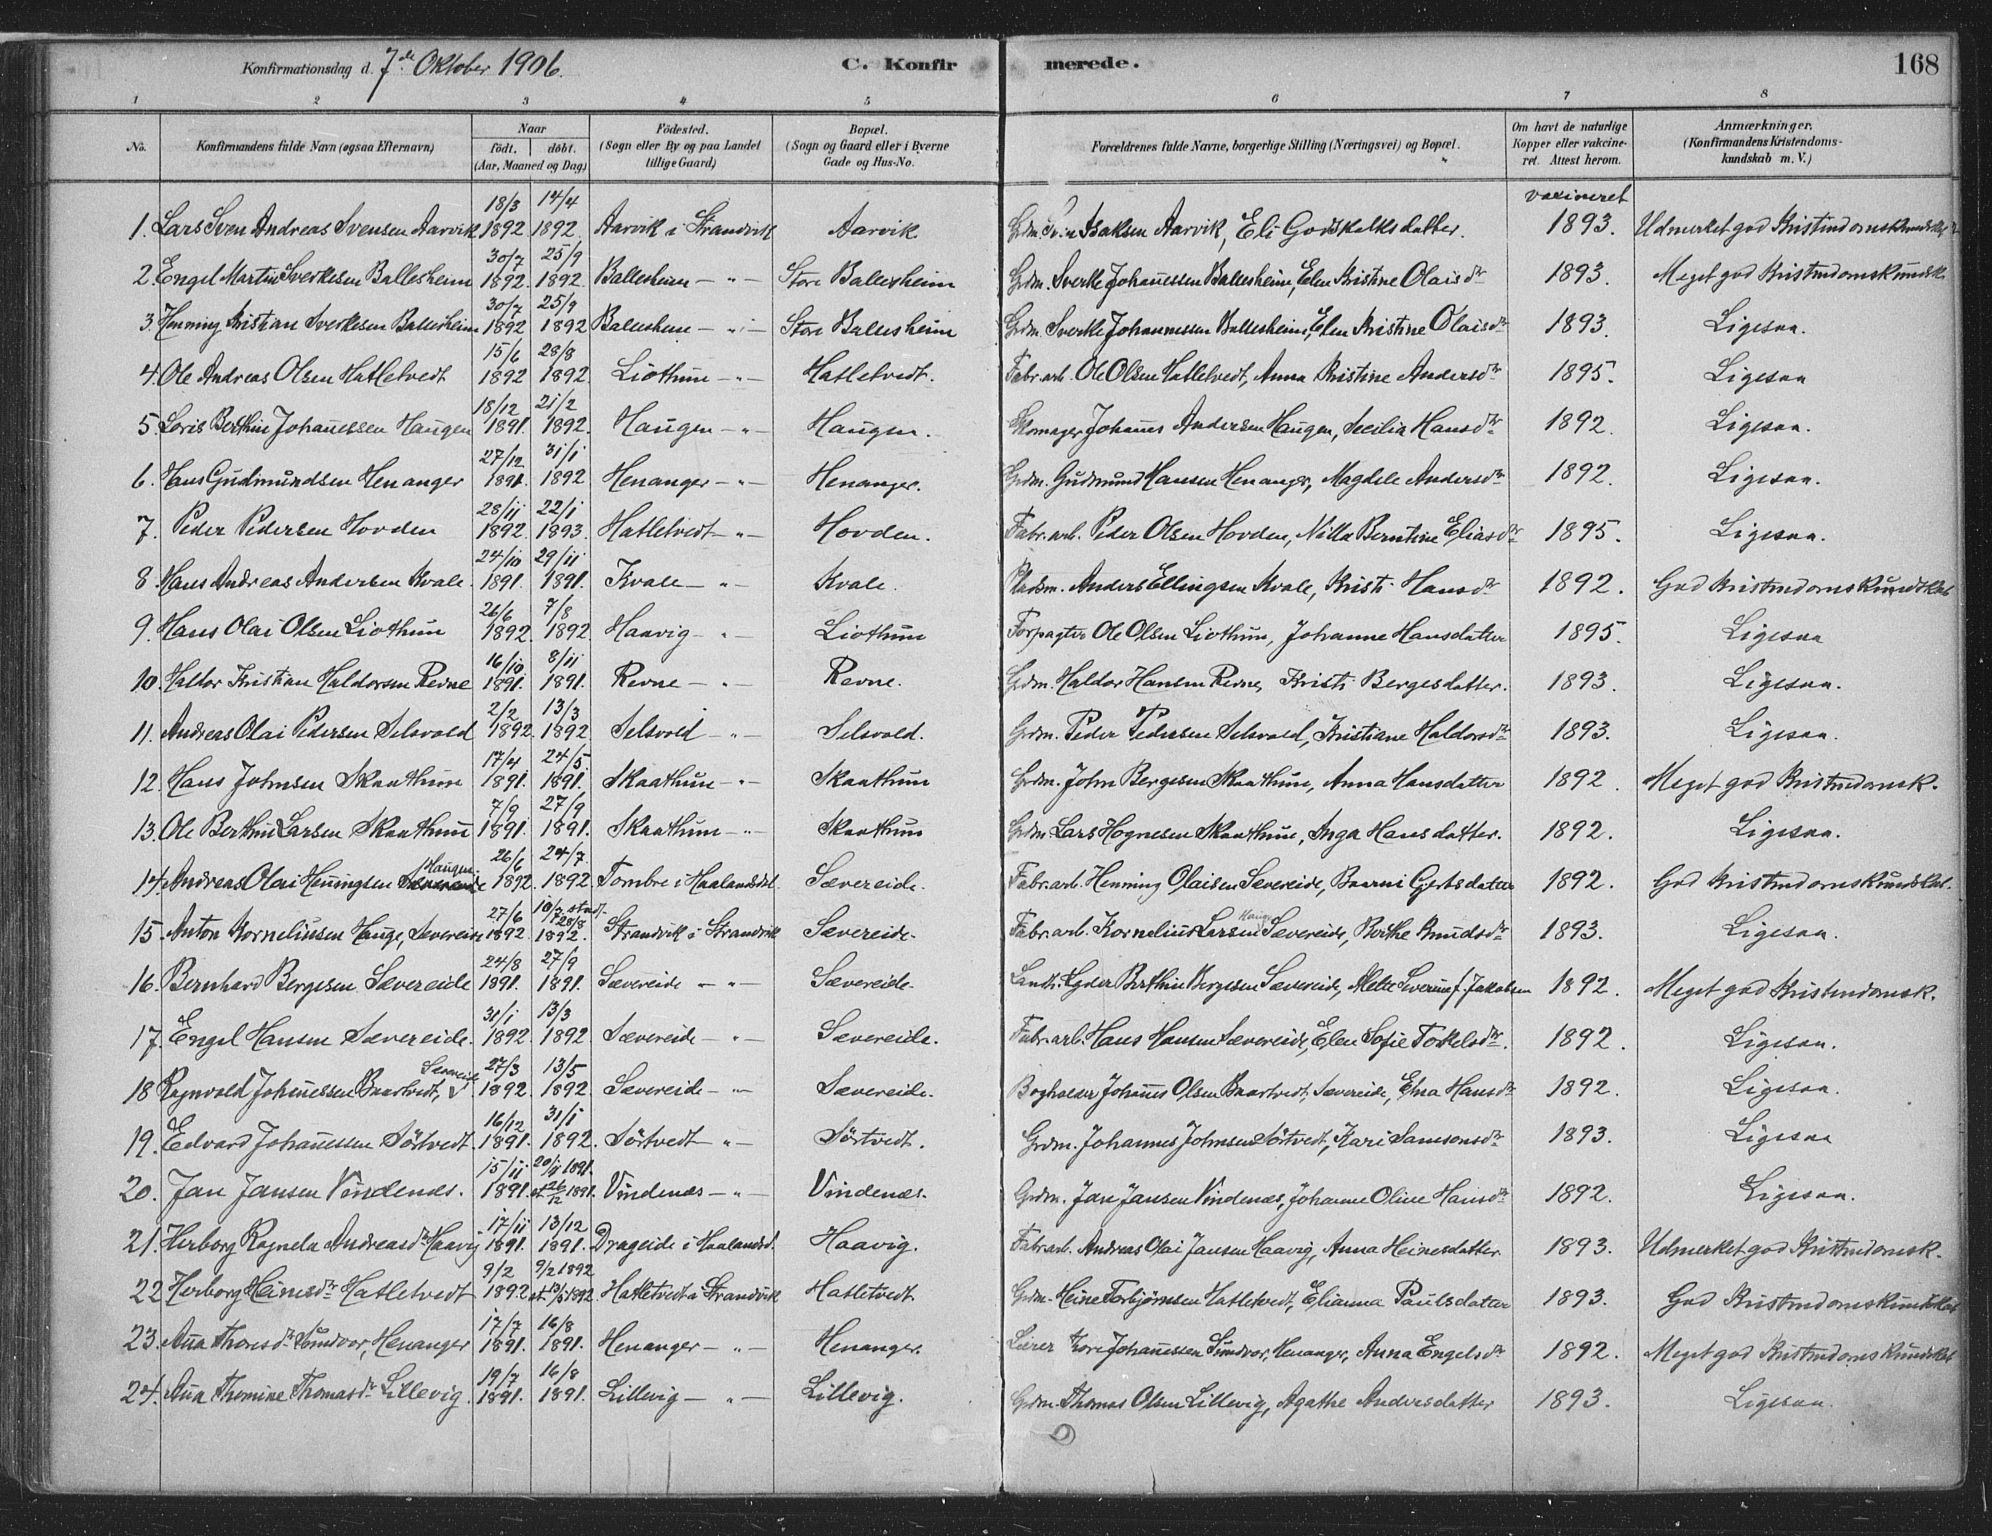 Konfirmationsdag d. 7de Oktober 1906. C. Konfirmerede. 168
1 2 3 4 5 6 7 8
No. Konfirmandens fulde Navn (ogsaa Efternavn) Naar födt. döbt. (Aar, Maaned og Dag) Födested. (Sogn eller By og paa Landet tillige Gaard) Bopæl. (Sogn og Gaard eller i Byerne Gade og Hus-No. Forældrenes fulde Navne, borgerlige Stilling (Næringsvei) og Bopæl. Om havt de naturlige Kopper eller vakcineret. Attest herom. Anmærkninger. (Konfirmandens Kristendomskundskab m. V.)
vaxineret
1. Lars Sven Andreas Svensen Aarvik 18/3 1892 14/4 1892. Aarvik i Strandvik Aarvik Grdm. Sven Isaksen Aarvik, Eli Godskalksdatter. 1893. Udmerket god Kristendomskundskab
2. Engel Martin Sverkesen Ballesheim 30/7 1892. 25/9 1892 Ballesheim — „ — Store Ballesheim Grdm. Sverke Johannessen Ballesheim, Elen Kristine Olaisdr 1893 Meget god Kristendomskundsk.
3. Henning Kristian Sverkesen Ballesheim 30/7 1892 25/9 1892 Ballesheim — „ — Store Ballesheim Grdm. Sverke Johannessen Ballesheim, Elen Kristine Olaisdr 1893. Ligesaa.
4. Ole Andreas Olsen Hatletvedt 15/6 1892 28/8 1892. Liothun — „ — Hatletvedt. Fabr. arb. Ole Olsen Hatletvedt, Anna Kristine Andersdr 1895. Ligesaa
5. Loris Berthin Johannessen Haugen 18/12 1891. 21/2 1892. Haugen — „ — Haugen. Skomager Johannes Andersen Haugen, Secilia Hansdr 1892. Ligesaa.
6. Hans Gudmundsen Henanger 27/12 1891. 31/1 1892 Henanger — „ — Henanger. Grdm. Gudmund Hansen Henanger, Magdele Andersdr 1892. Ligesaa.
7. Peder Pedersen Hovden 28/11 1892 22/1 1893. Hatletvedt — „ — Hovden. Fabr. arb. Peder Olsen Hovden, Nilla Berntine Eliasdr 1895. Ligesaa.
8. Hans Andreas Andersen Kvale. 24/10 1891. 29/11 1891. Kvale — „ — Kvale. Pladsm. Anders Ellingsen Kvale, Kristi Hansdr 1892. God Kristendomskundskab
9. Hans Olai Olsen Liothun 26/6 1892. 7/8 1892. Haavig — „ — Liothun Forpagter Ole Olsen Liothun, Johanne Hansdatter 1895. Ligesaa
10. Haldor Kristian Haldorsen Revne 16/10 1891. 8/11 1891. Revne — „ — Revne. Grdm. Haldor Hansen Revne, Kristi Bergesdatter. 1893. Ligesaa.
11. Andreas Olai Pedersen Selsvold 2/2 1892 13/3 1892. Selsvold — „ — Selsvold. Grdm. Peder Pedersen Selsvold, Kristiane Haldorsdr 1893. Ligesaa.
12. Hans Johnsen Skaathun 17/4 1891. 24/5. 1891. Skaathun — „ — Skaathun Grdm. John Bergesen Skaathun, Anna Hansdatter 1892. Meget god Kristendomsk.
13. Ole Berthin Larsen Skaathun 7/9 1891. 27/9 1891. Skaathun — „ — Skaathun Grdm. Lars Hognesen Skaathun, Inga Hansdatter. 1892. Ligesaa.
14. Andreas Olai Henningsen Haugen 26/6 1892. 24/7. 1892. Tombre i Haalandsdal Sævereide. Fabr. arb. Henning Olaisen Sævereide, Baarni Gjertsdatter 1892. God Kristendomskundskab.
15. Anton Kornelinsen Hauge, Sævereide 27/6 1892. 10/7 stadf. 28/8 1892. Strandvik i Strandvik Sævereide. Fabr. arb. Kornelius Larsen Hauge Sævereide, Berthe Knudsdr 1893. Ligesaa.
16. Bernhard Bergesen Sævereide 24/8 1891. 27/9 1891. Sævereide — „ — Sævereide. Berthin Bergesen Sævereide, f. Jakobsen 1892. Meget god Kristendomsk.
17. Engel Hansen Sævereide. 31/1 1892 13/3 1892. Sævereide — „ — Sævereide. Fabr. arb. Hans Hansen Sævereide, Elen Sofie Torkelsdr. 1892. Ligesaa.
18 Ragnvald Johannessen Baartvedt, Sævereide 27/3 1892. 13/5 1892. Sævereide — „ — Sævereide. Bogholder Johannes Olsen Baartvedt, Sævereide, Edna Hansdr 1892. Ligesaa.
19. Edvard Johannessen Sörtvedt. 16/12 1891. 31/1 1892. Sörtvedt — „ — Sörtvedt. Grdm. Johannes Johnsen Sörtvedt, Kari Samsonsdr 1893. Ligesaa
20. Jan Jansen Vindenæs. 15/11 1891. 20/11 1891. st. 26/12 1891. Vindenæs — „ — Vindenæs. Grdm. Jan Jansen Vindenæs, Johanne Oline Hansdr 1892. Ligesaa.
21. Herborg Ragnela Andreasdr Haavig 17/11 1891. 13/12 1891. Drageide i Haalandsd. Haavig. Fabr. arb. Andreas Olai Jansen Haavig, Anna Heinesdatter. 1893. Udmerket god Kristendomsk.
22 Herborg Heinesdr Hatletvedt 9/2 1892 9/2 1892 st. 13/5 1892. Hatletvedt i Strandvik Hatletvedt Grdm. Heine Torbjørnsen Hatletvedt, Elianna Paulsdatter 1893. God Kristendomskundskab
23. Ana Thoresdr Sundvor, Henanger 17/7 1891. 16/8 1891. Henanger — „ — Henanger. Lærer Tore Johannessen Sundvor, Henanger, Anna Engelsdr 1892. Meget god Kristendomskundskab
24. Ana Thomine Thomasdr Lillevig 19/7 1891. 16/8 1891. Lillevig — „ — Lillevig. Grdm. Thomas Olsen Lillevig, Agathe Andersdatter 1893. Ligesaa.